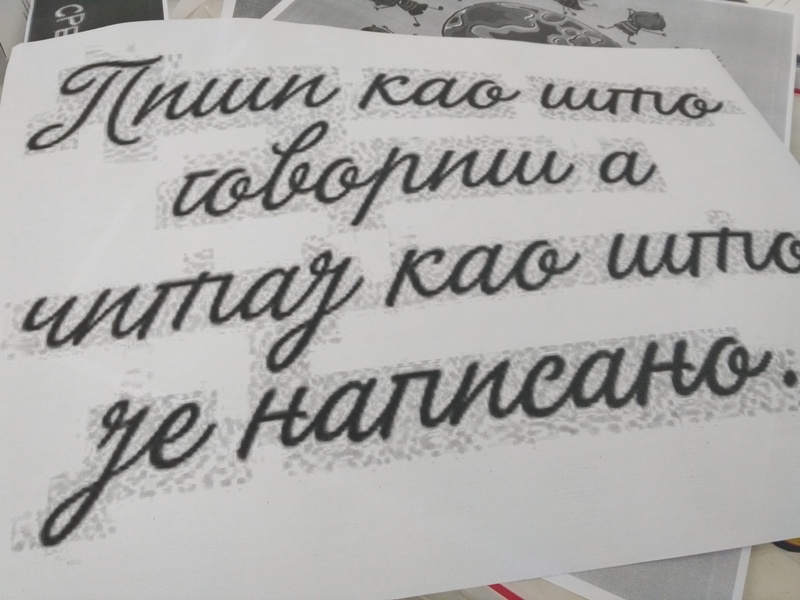 СР
Пиши као што
говориш а
читај као што
је написано.